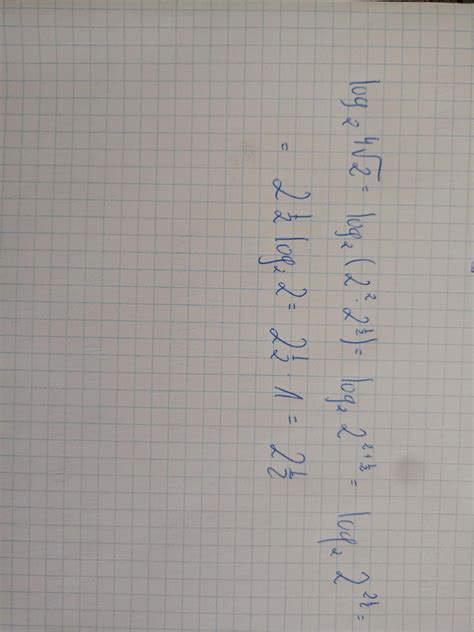 log₂ 4√2 = log₂(2² · 2^½) = log₂ 2^(2+½) = log₂ 2^(2½) =
= 2½ log₂ 2 = 2½ · 1 = 2½